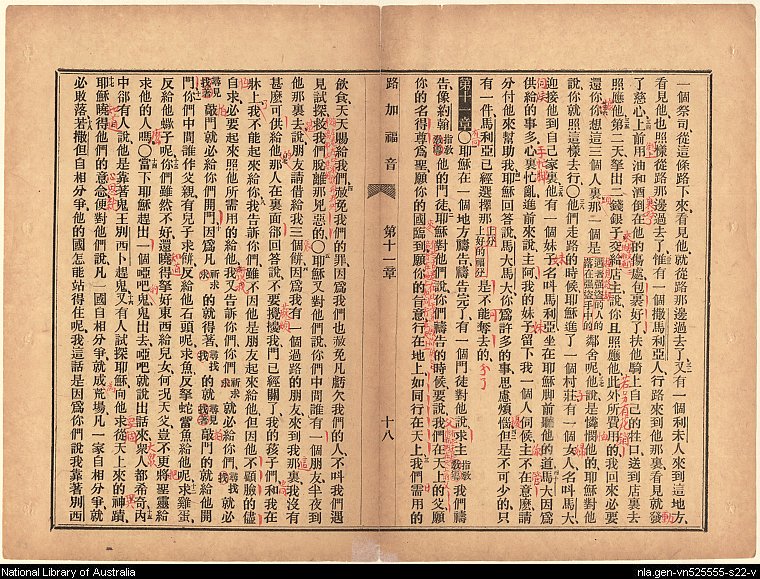 一個祭司從這條路下來看見他就從路那邊過去了又有一個利未人來到這地方、
看見他也照樣從路那邊過去了惟有一個撒馬利亞人行路來到他那裏看見就發
了慈心上前用油和酒倒在他的傷處包裹好了扶他騎上自己的牲口送到店裏去
照應他第二天拏出二錢銀子交給店主說你且照應他此外所費用的我回來必要
還你你想這三個人裏那一個是遇著強盜的人的落在強盜手中的鄰舍呢他說是憐憫他的耶穌對他
說你就照這樣去行○他們走路的時候耶穌進了一個村莊有一個女人名叫馬大、
迎接他到自己家裏他有一個妹子名叫馬利亞坐在耶穌脚前聽他的道馬大因爲
供給的事多心裏忙亂進前來說主阿我的妹子留下我一個人伺候主不在意麼請
分付他來幫助我耶穌回答說馬大馬大你爲許多的事思慮煩惱但是不可少的只
有一件馬利亞已經選擇那上好的福分是不能奪去的、
第十一章○耶穌在一個地方禱告禱告完了有一個門徒對他說求主指教教導我們禱
告像約翰指教教導他的門徒耶穌對他們說你們禱告的時候要說我們在天上的父願
你的名得尊爲聖願你的國臨到願你的旨意行在地上如同行在天上我們需用的
路加福音 第十一章 十八
飲食天天賜給我們赦免我們的罪因爲我們也赦免凡虧欠我們的人不叫我們遇
見試探救我們脫離那兇惡的○耶穌又對他們說你們中間誰有一個朋友半夜到
他那裏去說朋友請借給我三個餅因爲我有一個過路的朋友來到我那裏我沒有
甚麼可供給他那人在裏面卻回答說不要攪擾我門已經關了我的孩子們和我在
牀上我不能起來給你我告訴你們雖不因他是朋友起來給他但因他不顧臉的儘
自求必要起來照他所需用的給他我又告訴你們你們祈求求就必給你們尋找我就必
尋見我着敲門就必給你們開門因爲凡祈求求的就得著尋找我的就尋見我着敲門的就給他開
門你們中間誰作父親有兒子求餅反給他石頭呢求魚反拏蛇當魚給他呢求雞蛋、
反給他蠍子呢你們雖然不好還曉得拏好東西給兒女何况天父豈不更將聖靈給
求他的人嗎○當下耶穌趕出一個啞吧鬼鬼出去啞吧就說出話來衆人都希奇內
中卻有人說他是靠著鬼王別西卜趕鬼又有人試探耶穌向他求從天上來的神蹟
耶穌曉得他們的意念便對他們說凡一國自相分爭就成荒場凡一家自相分爭就
必敗落若撒但自相分爭他的國怎能站得住呢我這話是因爲你們說我靠著別西
National Library of Australia
nla.gen-vn525555-s22-v